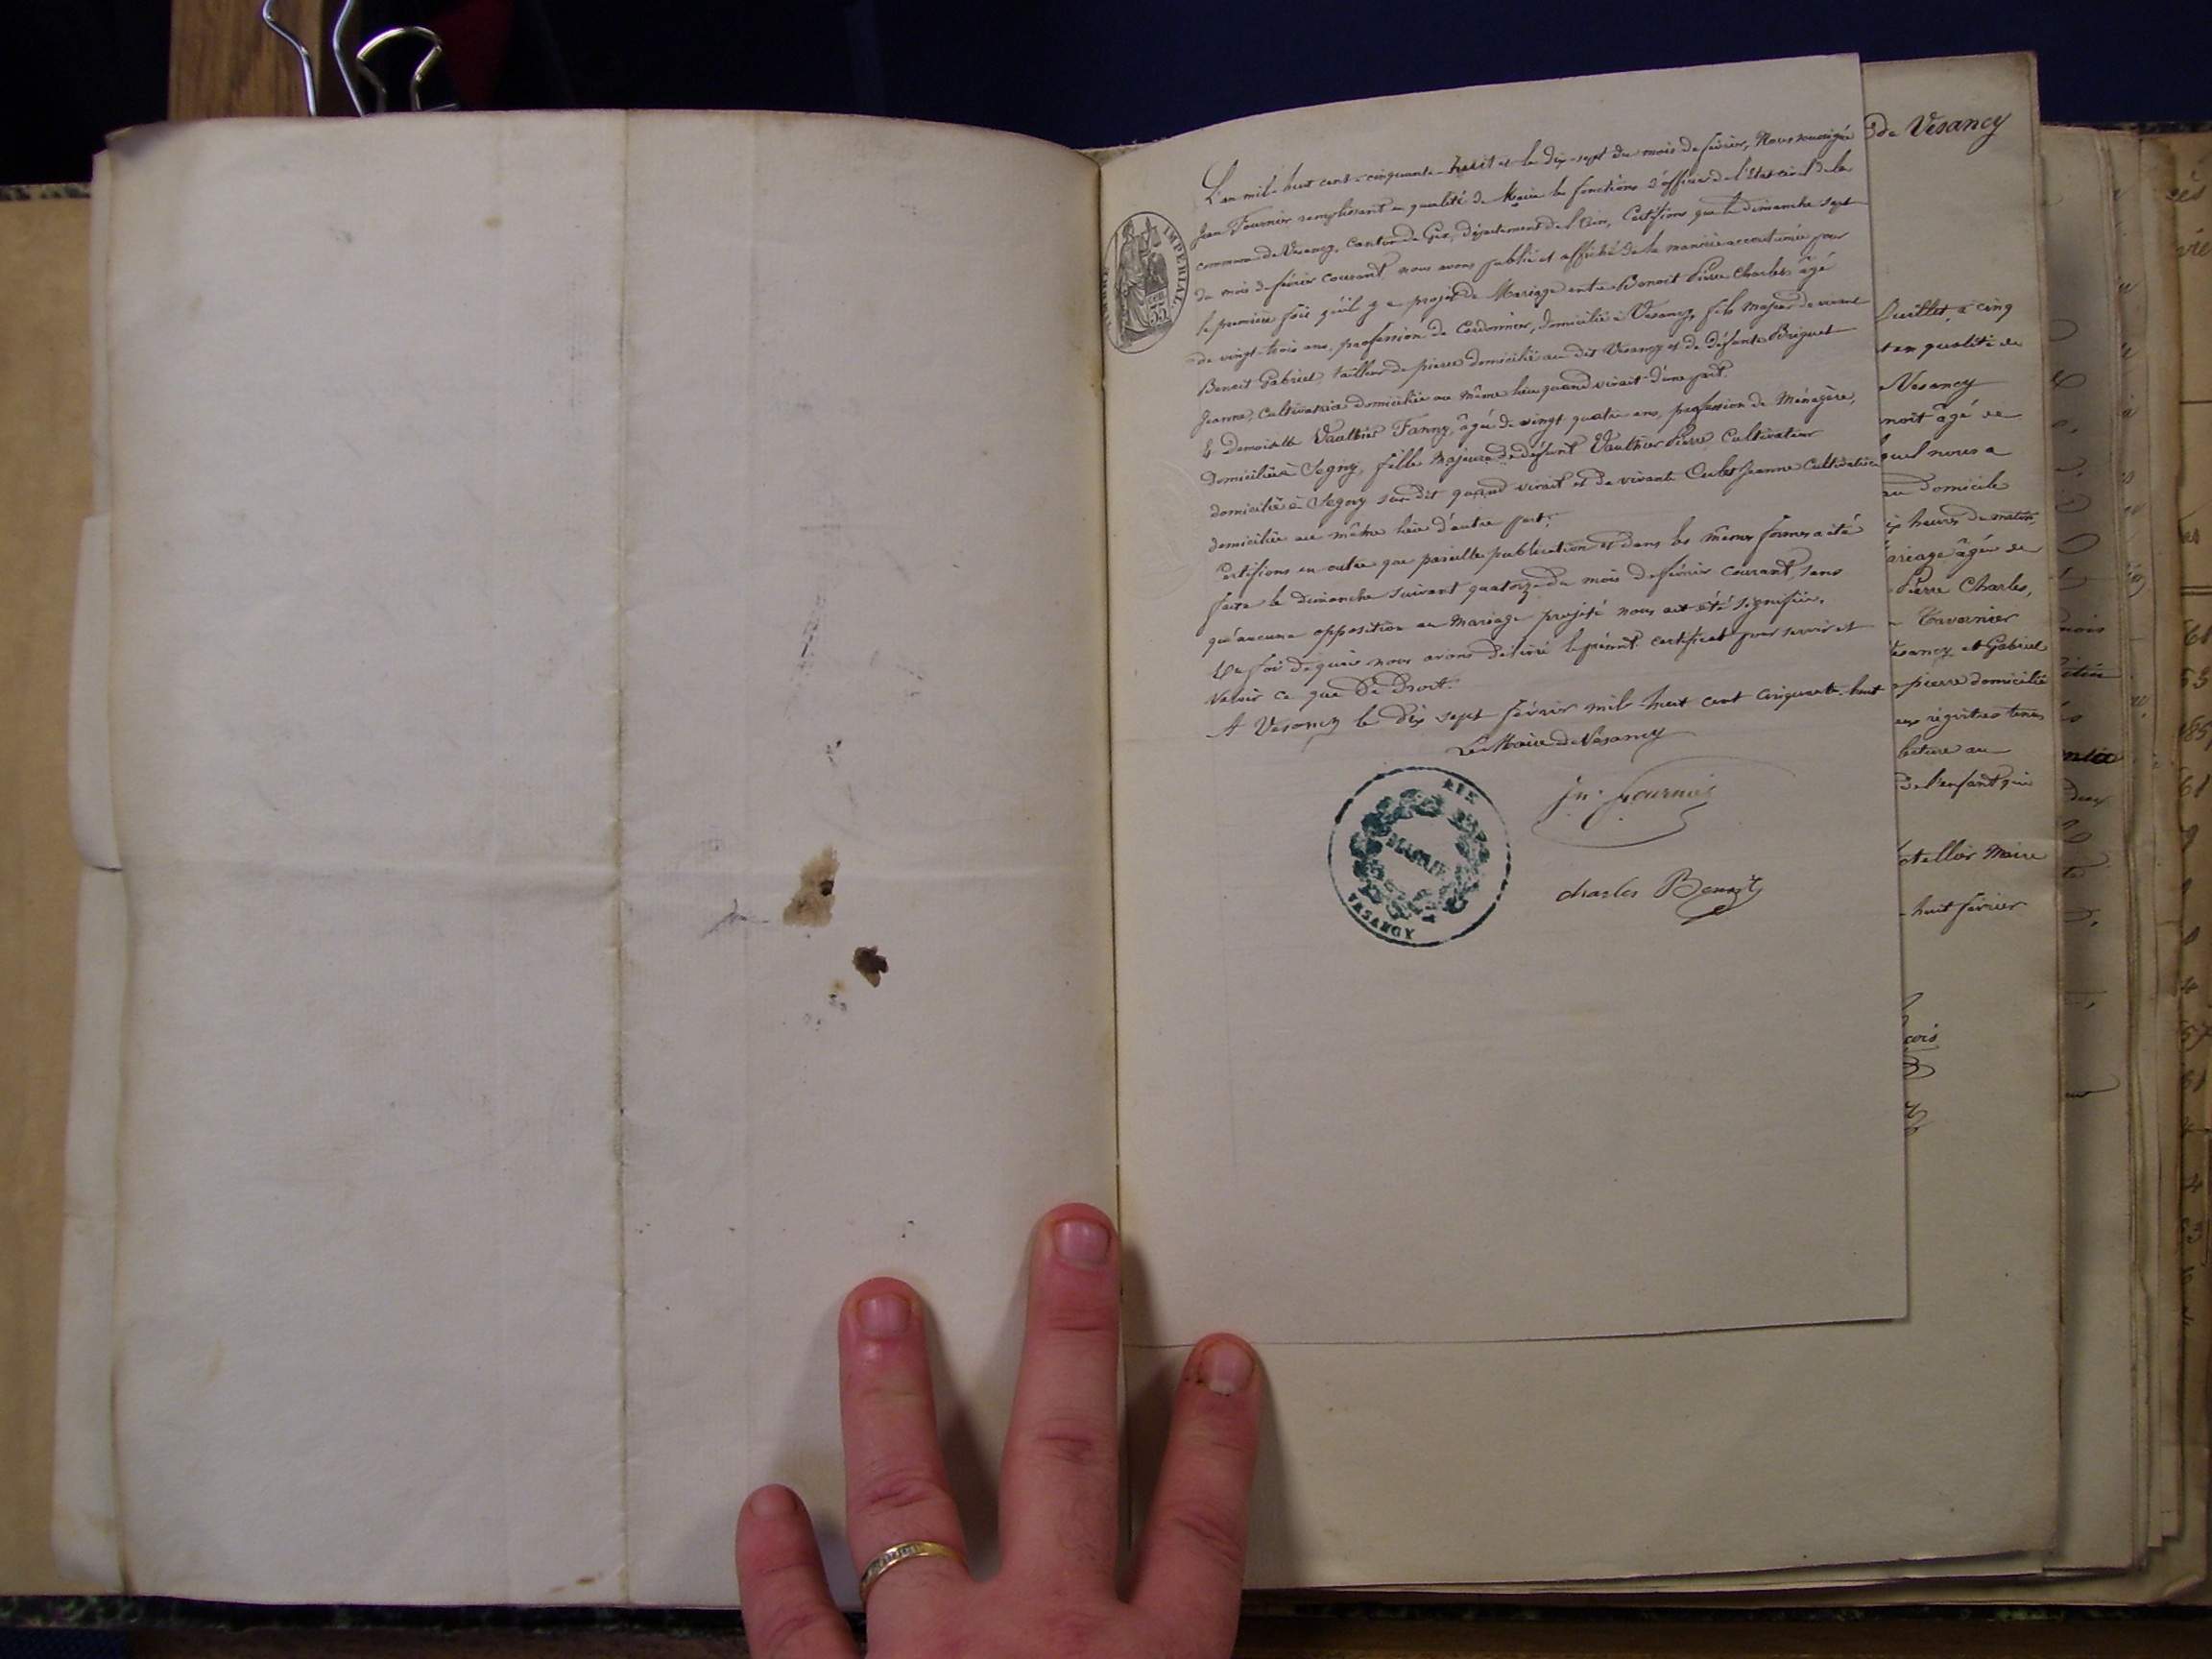 de Vesancy
L'an mil huit cent cinquante-huit et le dix-sept du mois de février, Nous soussigné
Jean Fournier remplissant en qualité de Maire les fonctions d'officier de l'Etat civil de la
commune de Vesancy, Canton de Gex, département de l'Ain, Certifions que le dimanche sept
du mois de février courant nous avons publié et affiché de la manière accoutumée pour
la première fois qu'il y a projet de Mariage entre Benoit Pierre Charles âgé
de vingt-trois ans, profession de Cordonnier, domicilié à Vesancy, fils majeur de vivant
Benoit Gabriel, tailleur de pierre domicilié au dit Vesancy et de défunte Briguet
Jeanne, Cultivatrice domiciliée au même lieu quand vivait d'une part.
& Demoiselle Vaulthier Fanny, âgée de vingt quatre ans, profession de Ménagère,
domiciliée à Segny, fille Majeure de défunt Vaulthier Pierre Cultivateur
domicilié à Segny sus dit quand vivait et de vivante Jeanne Cultivatrice
domiciliée au même lieu d'autre part.
Certifions en outre que pareille publication et dans les mêmes formes a été
faite le dimanche suivant quatorze du mois de février courant, sans
qu'aucune opposition au Mariage projeté nous ait été signifiée.
En foi de quoi nous avons délivré le présent certificat pour servir et
valoir ce que de Droit.
A Vesancy le dix sept février mil-huit cent cinquante-huit
Le Maire de Vesancy
Jn. Fournier
Charles Benoit
TIMBRE IMPERIAL
35
MAIRIE
VESANCY
AIN
Juillet, à cinq
et en qualité de
Vesancy
noit âgé de
quel nous a
au domicile
ix heures du matin,
ariage âgée de
Pierre Charles,
Tavernier
Vesancy et Gabriel
pierre domicilié
aux registres tenus
lecture au
de l'enfant qui
Maire
huit février
cois